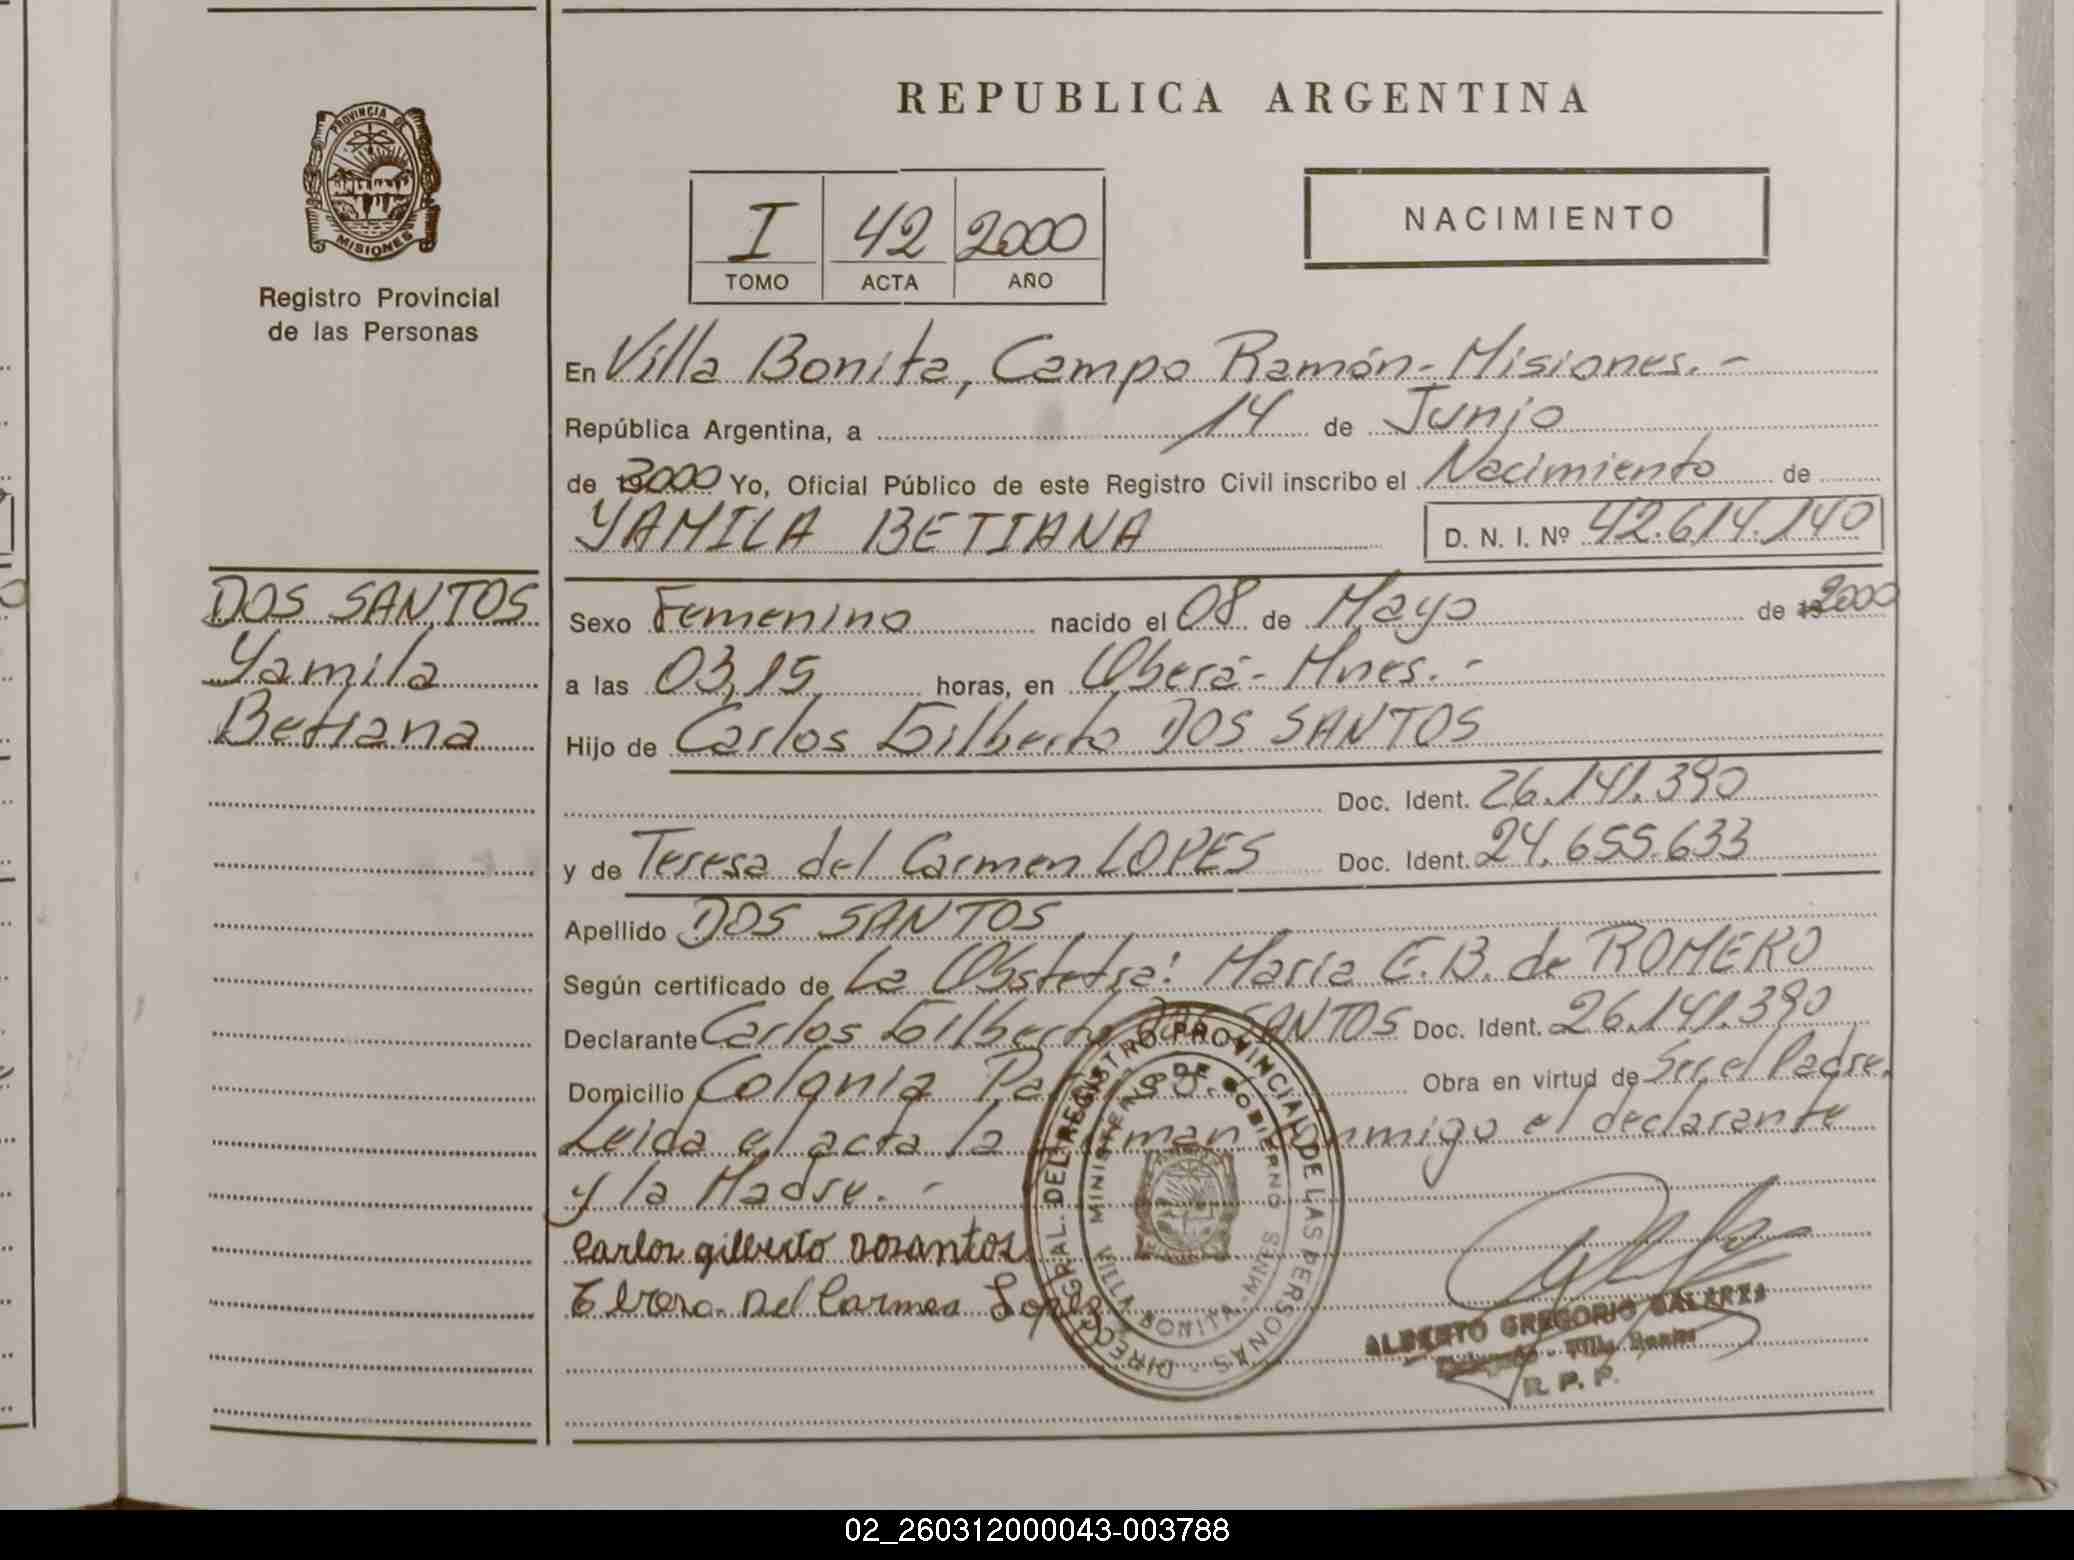 REPUBLICA ARGENTINA
PROVINCIA DE
MISIONES
Registro Provincial
de las Personas
I 42 2000
TOMO ACTA AÑO
NACIMIENTO
En Villa Bonita, Campo Ramón - Misiones. -
República Argentina, a 14 de Junio
de 2000 Yo, Oficial Público de este Registro Civil inscribo el Nacimiento de
YAMILA BETIANA D. N. I. Nº 42.614.140
DOS SANTOS
Yamila
Betiana
Sexo Femenino nacido el 08 de Mayo de 2000
a las 03,15 horas, en Oberá - Mnes. -
Hijo de Carlos Gilberto DOS SANTOS
Doc. Ident. 26.141.390
y de Teresa del Carmen LOPES Doc. Ident. 24.655.633
Apellido DOS SANTOS
Según certificado de La Obstetra: Maria E.B. de ROMERO
Declarante Carlos Gilberto DOS SANTOS Doc. Ident. 26.141.390
Domicilio Colonia Obra en virtud de Ser el Padre.
Leida el acta la conmigo el declarante
y la Madre. -
carlos gilberto dosantos
del Carmen Lopez
DIRECC. GRAL. DEL REGISTRO PROVINCIAL DE LAS PERSONAS
MINISTERIO DE GOBIERNO
VILLA BONITA - MNES
ALBERTO GREGORIO GALARZA
Villa Bonita
R. P. P.
02_260312000043-003788